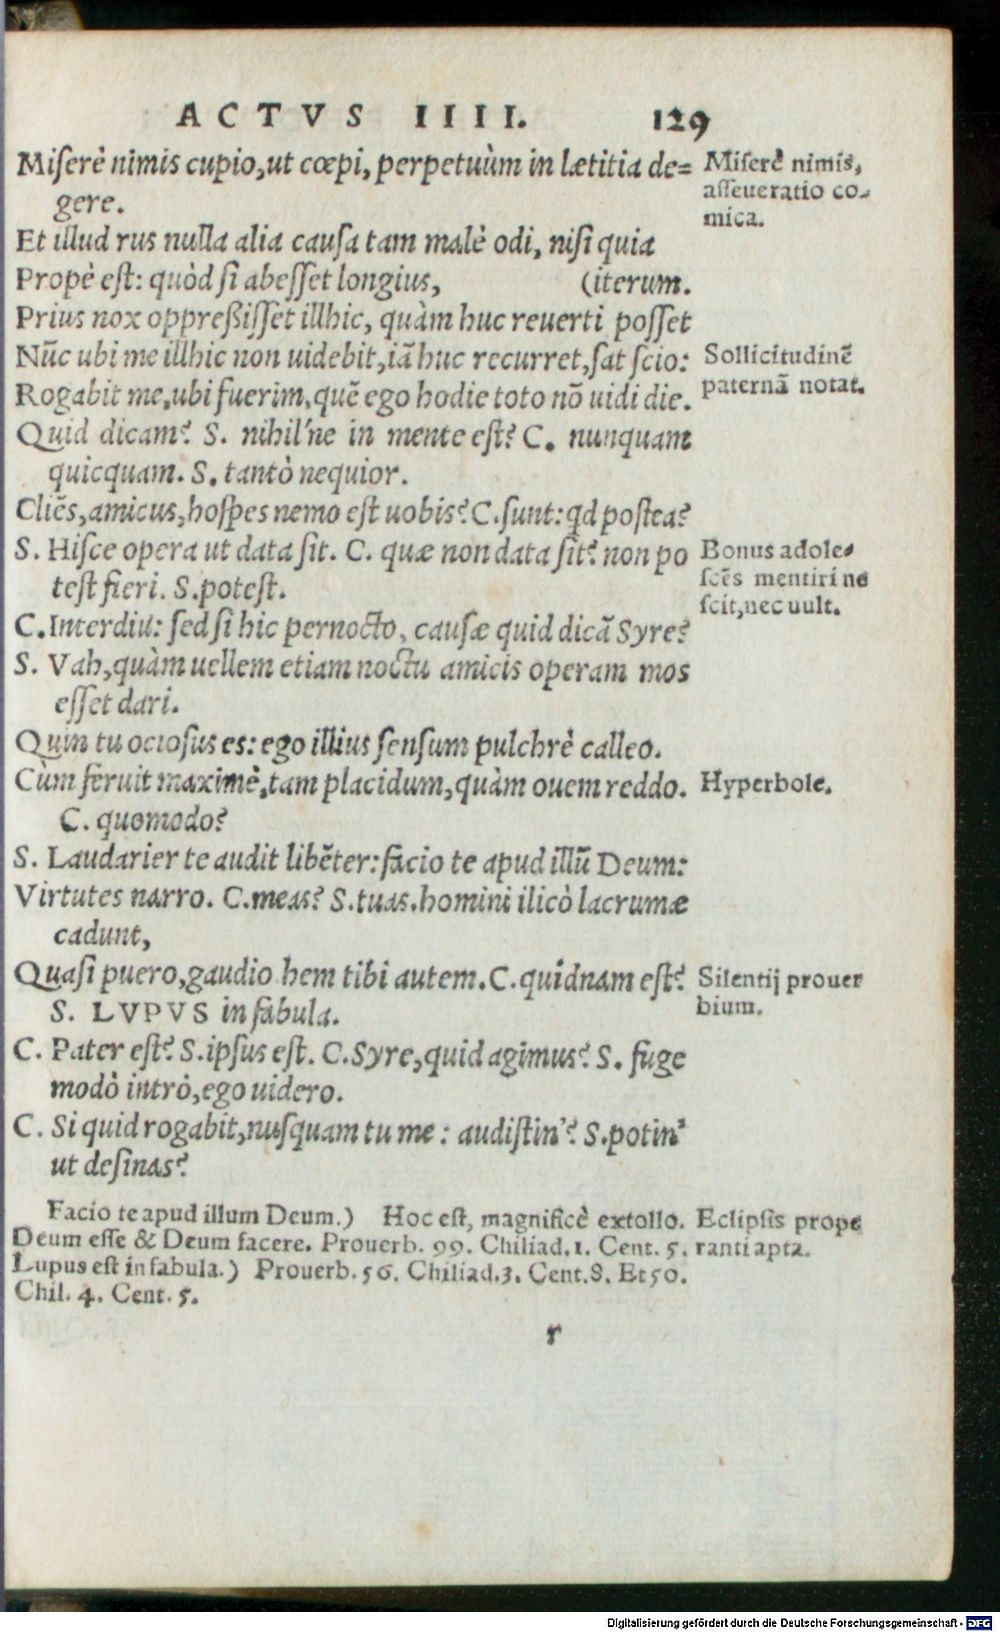 ACTVS IIII. 129
Miserè nimis cupio, ut cœpi, perpetuùm in lætitia de=
gere.
Et illud rus nulla alia causa tam malè odi, nisi quia
Propè est: quòd si abesset longius, (iterum.
Prius nox oppreßisset illhic, quàm huc reuerti posset
Nũc ubi me illhic non uidebit, iã huc recurret, sat scio:
Rogabit me, ubi fuerim, quẽ ego hodie toto nõ uidi die.
Quid dicam? S. nihil'ne in mente est? C. nunquam
quicquam. S. tantò nequior.
Cliẽs, amicus, hospes nemo est uobis? C. sunt: qd postea?
S. Hisce opera ut data sit. C. quæ non data sit? non po
test fieri. S. potest.
C. Interdiu: sed si hic pernocto, causæ quid dicã Syre?
S. Vah, quàm uellem etiam noctu amicis operam mos
esset dari.
Quin tu ociosus es: ego illius sensum pulchrè calleo.
Cùm feruit maximè, tam placidum, quàm ouem reddo.
C. quomodo?
S. Laudarier te audit libẽter: facio te apud illũ Deum:
Virtutes narro. C. meas? S. tuas. homini ilicò lacrumæ
cadunt,
Quasi puero, gaudio hem tibi autem. C. quidnam est?
S. LVPVS in fabula.
C. Pater est? S. ipsus est. C. Syre, quid agimus? S. fuge
modò intrò, ego uidero.
C. Si quid rogabit, nusquam tu me : audistin'? S. potin'
ut desinas?
Miserè nimis,
asseueratio co-
mica.
Sollicitudinẽ
paternã notat.
Bonus adole-
scẽs mentiri ne
scit, nec uult.
Hyperbole.
Silentij prouer
bium.
Facio te apud illum Deum.) Hoc est, magnificè extollo.
Deum esse & Deum facere. Prouerb. 99. Chiliad. 1. Cent. 5.
Lupus est in fabula.) Prouerb. 56. Chiliad. 3. Cent. 8. Et 50.
Chil. 4. Cent. 5.
Eclipsis prope
ranti apta.
r
Digitalisierung gefördert durch die Deutsche Forschungsgemeinschaft - DFG